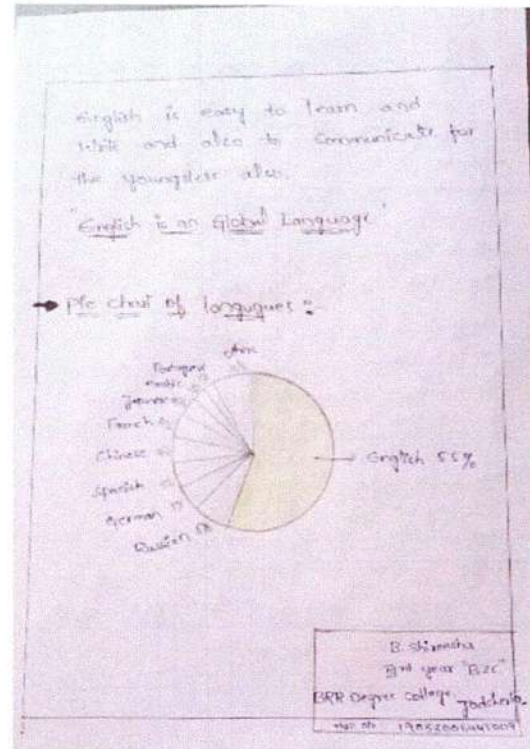 English is easy to learn and
write and also to Communicate for
the youngsters also.
"English is an Global Language"
Pie chart of languages :-
French
Chinese
Spanish
German
Russian
English 55%
B. Shireesha
3rd year "BZC"
BRR Degree College, Jadcherla.